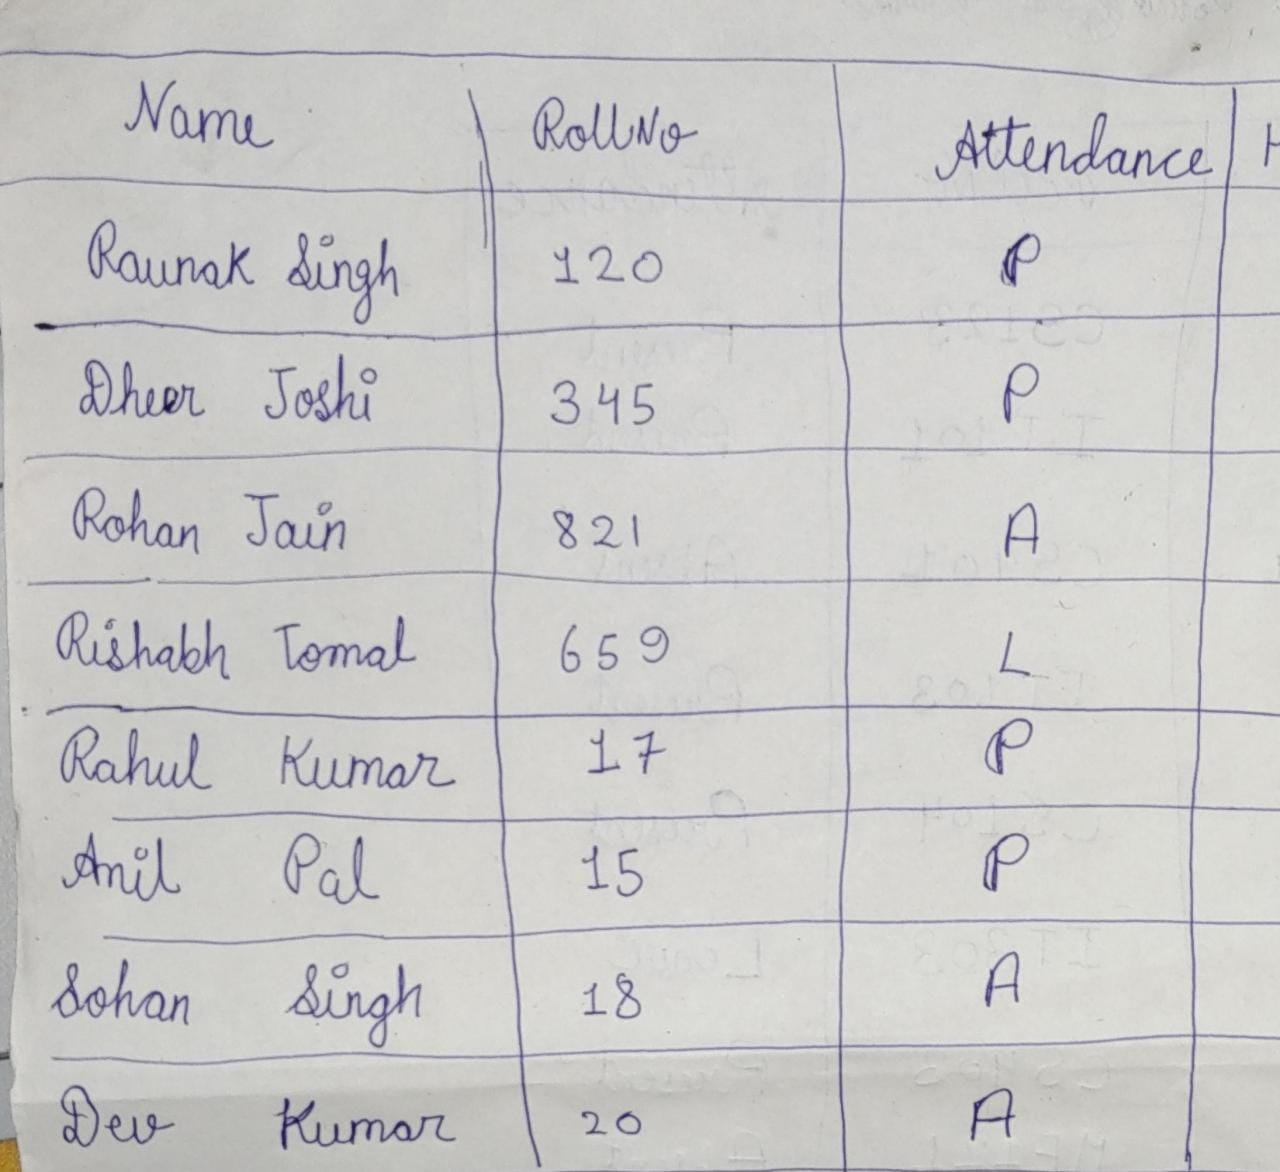 Name RollNo Attendance H
Raunak Singh 120 P
Dheer Joshi 345 P
Rohan Jain 821 A
Rishabh Tomal 659 L
Rahul Kumar 17 P
Anil Pal 15 P
Sohan Singh 18 A
Dev Kumar 20 A